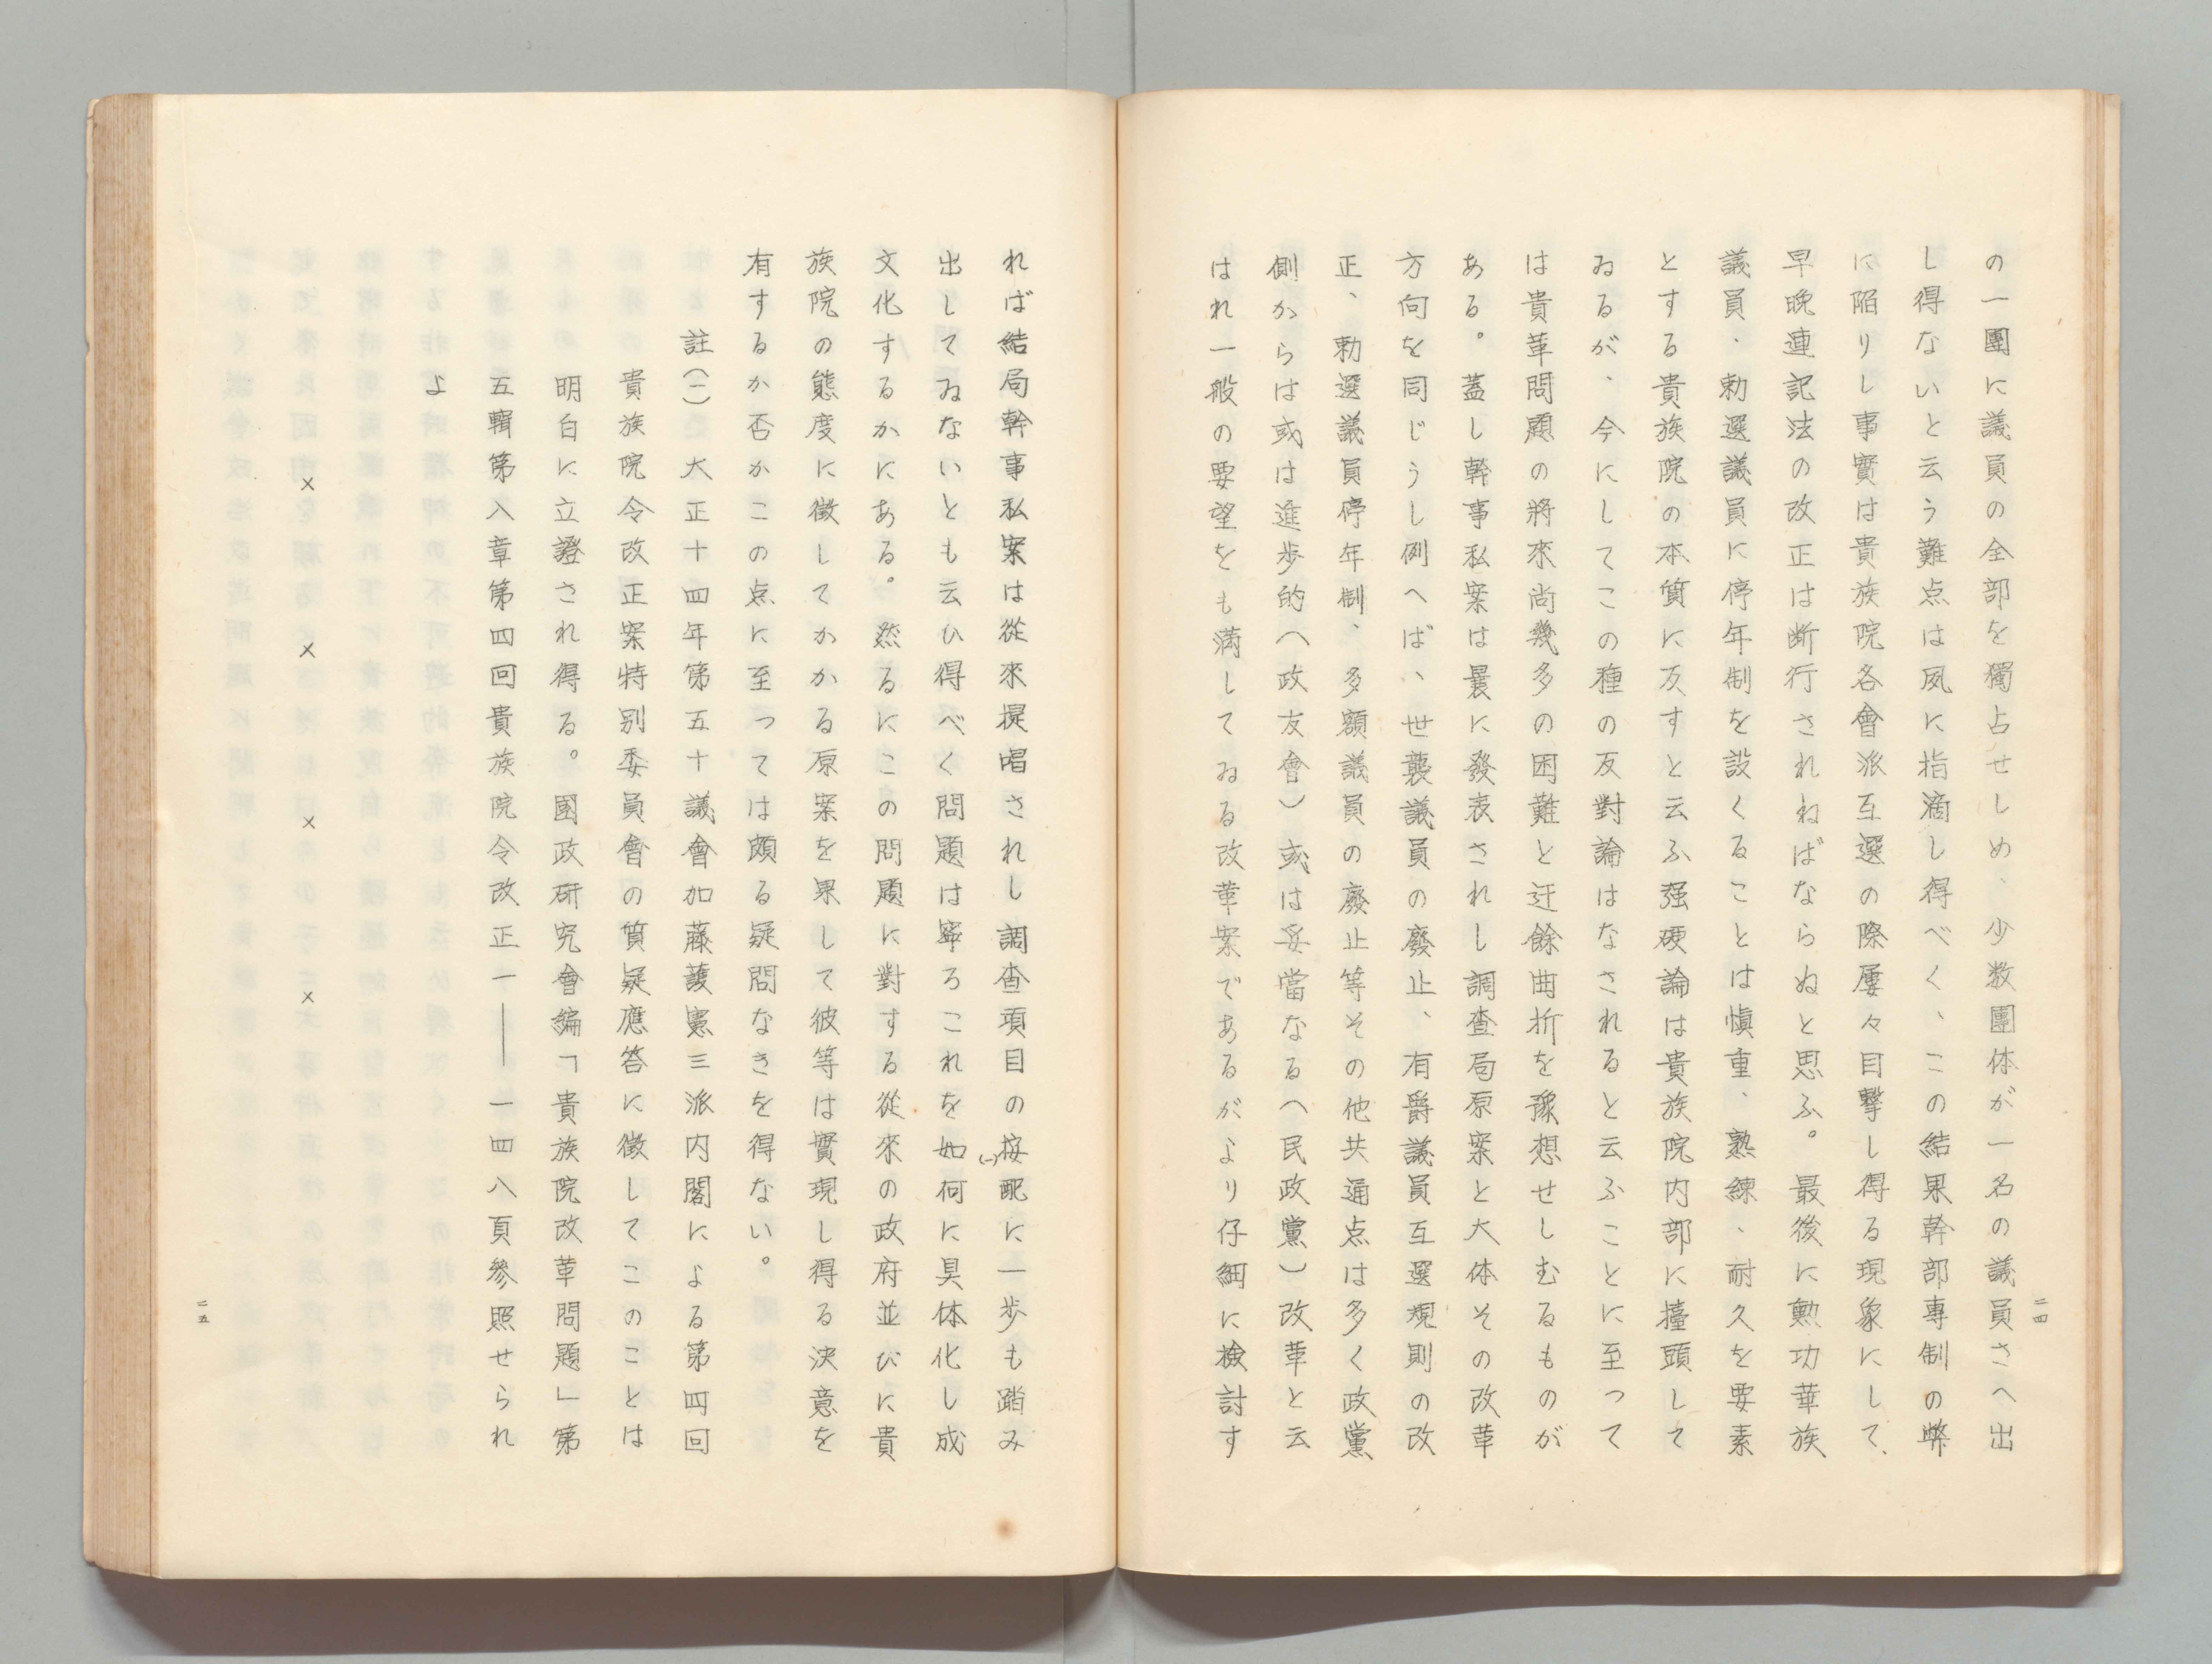 二四
の一團に議員の全部を獨占せしめ、少数團体が一名の議員さへ出
し得ないと云う難点は夙に指滴し得べく、この結果幹部專制の弊
に陷りし事實は貴族院各會派互選の際屢々目撃し得る現象にして、
早晩連記法の改正は断行されねばならぬと思ふ。最後に勲功華族
議員、勅選議員に停年制を設くることは愼重、熟練、耐久を要素
とする貴族院の本質に反すと云ふ强硬論は貴族院内部に擡頭して
ゐるが、今にしてこの種の反對論はなされると云ふことに至って
は貴革問題の將來尚幾多の困難と迂餘曲折を豫想せしむるものが
ある。蓋し幹事私案は曩に發表されし調査局原案と大体その改革
方向を同じうし例へば、世襲議員の廢止、有爵議員互選規則の改
正、勅選議員停年制、多額議員の廢止等その他共通点は多く政黨
側からは或は進歩的(政友會)或は妥當なる(民政黨)改革と云
はれ一般の要望をも満してゐる改革案であるがより仔細に檢討す
れば結局幹事私案は從來提唱されし調査項目の按配に一歩も踏み
出してゐないとも云ひ得べく問題は寧ろこれを如何に具体化し成(一)
文化するかにある。然るにこの問題に對する從來の政府並びに貴
族院の態度に徴してかかる原案を果して彼等は實現し得る決意を
有するか否かこの点に至っては頗る疑問なきを得ない。
註(一)大正十四年第五十議會加藤護憲三派内閣による第四回
貴族院令改正案特別委員會の質疑應答に徴してこのことは
明白に立證され得る。國政研究會編「貴族院改革問題」第
五輯第八章第四回貴族院令改正一——一四八頁參照せられ
よ
× × × ×
二五